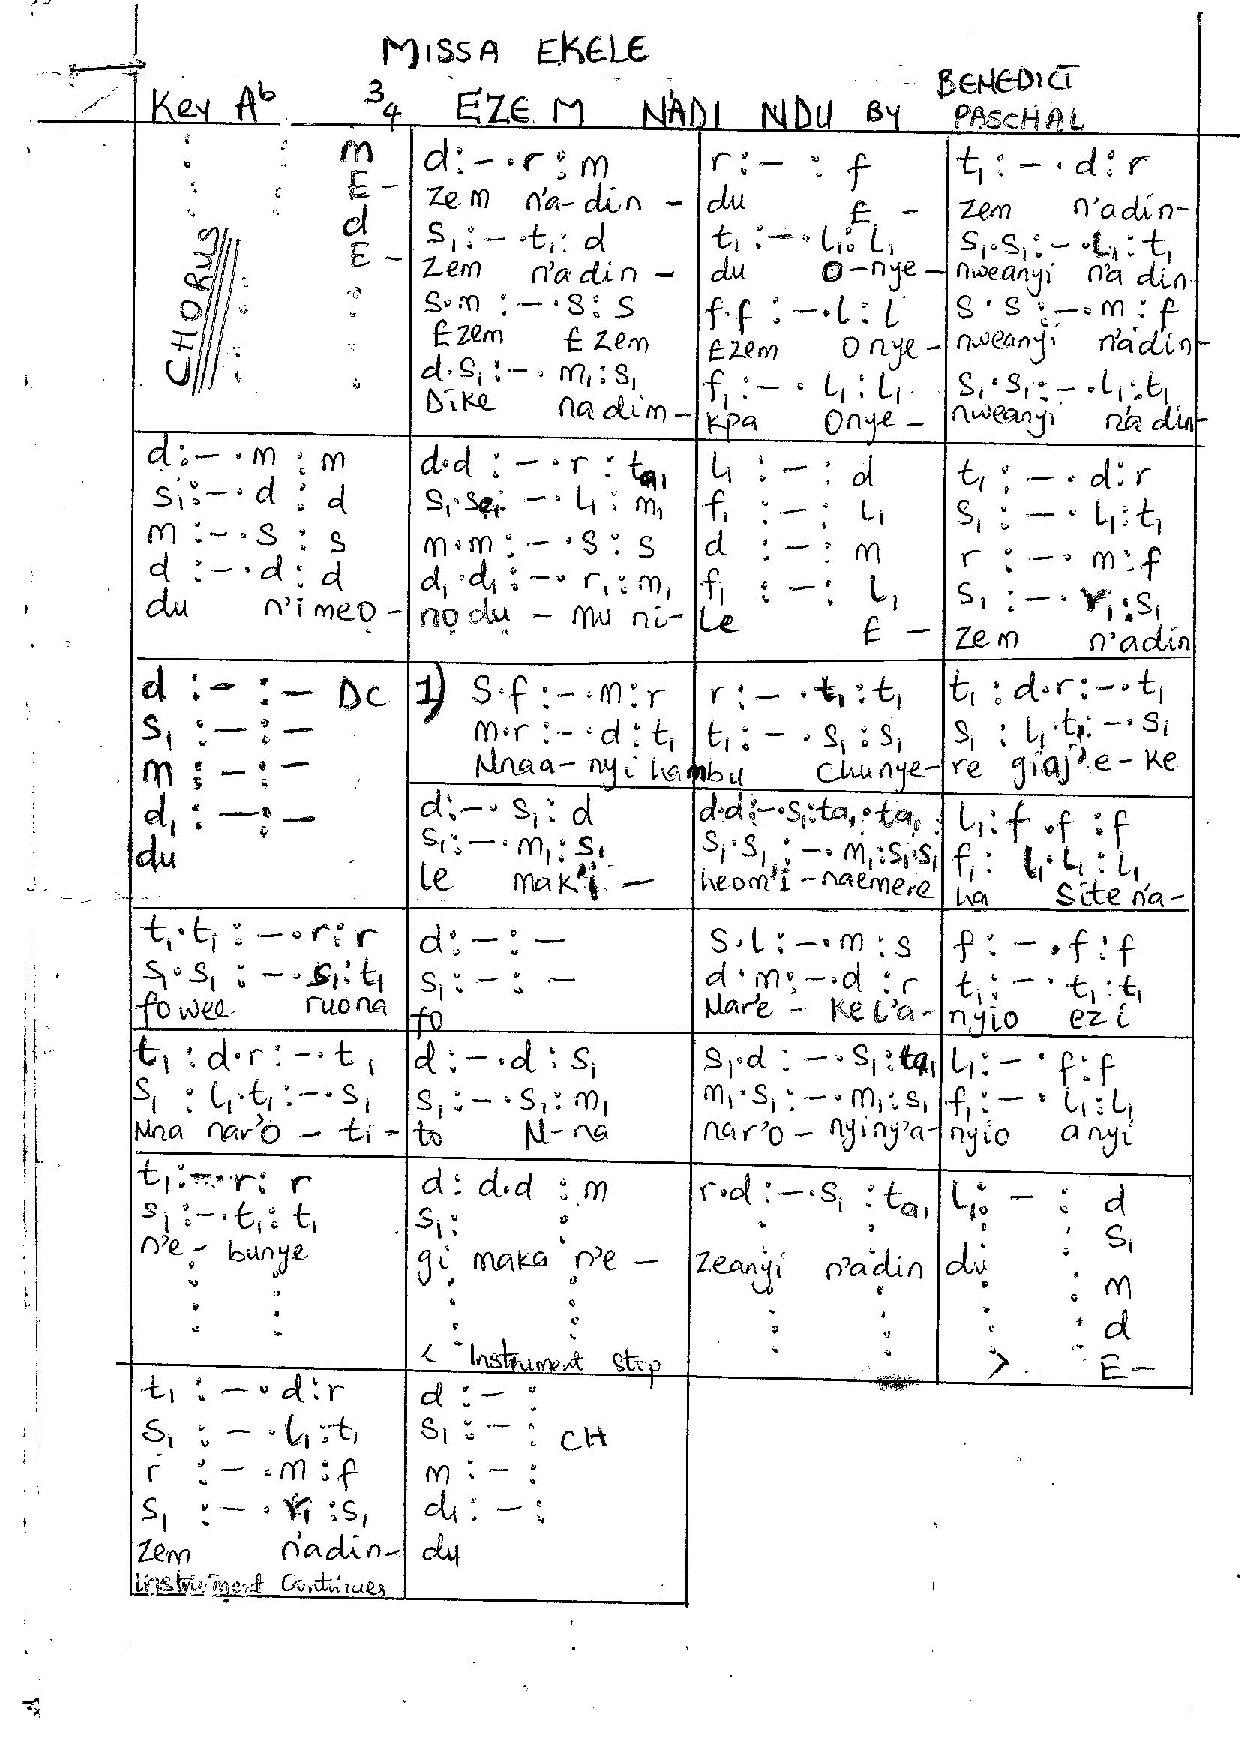 MISSA EKELE
BENEDICT
Key Ab 3/4 EZE M NÀDI NDU BY PASCHAL
CHORUS
m d:-.r:m r:-:f t₁:-.d:r
E- zem n'a-din- du E- zem n'adin-
d s₁:-.t₁:d t₁:-.l₁:l₁ s₁.s₁:-.l₁:t₁
E- zem n'adin- du O-nye- nweanyi n'a din-
s.m:-.s:s f.f:-.l:l s.s:-.m:f
Ezem Ezem Ezem Onye- nweanyi n'adin-
d.s₁:-.m₁:s₁ f₁:-.l₁:l₁ s₁.s₁:-.l₁:t₁
Dike nadim- kpa Onye- nweanyi n'a din-
d:-.m:m d.d:-.r:ta₁ l₁:-:d t₁:-.d:r
s₁:-.d:d s₁.s₁:-.l₁:m₁ f₁:-:l₁ s₁:-.l₁:t₁
m:-.s:s m.m:-.s:s d:-:m r:-.m:f
d:-.d:d d₁.d₁:-.r₁:m₁ f₁:-:l₁ s₁:-.r₁:s₁
du n'imeo- nọdu-mu ni- le E- zem n'adin
d:-:- DC 1) s.f:-.m:r r:-.t₁:t₁ t₁:d.r:-.t₁
s₁:-:- m.r:-.d:t₁ t₁:-.s₁:s₁ s₁:l₁.t₁:-.s₁
m:-:- Nnaa-nyi hambu Chunye- re giaj'e-ke
d₁:-:- d:-.s₁:d d.d:-.s₁:ta₁.ta₁ l₁:f.f:f
du s₁:-.m₁:s₁ s₁.s₁:-.m₁:s₁.s₁ f₁:l₁.l₁:l₁
le mak'i- heom'i-naemere ha Site n'a-
t₁.t₁:-.r:r d:-:- s.l:-.m:s f:-.f:f
s₁.s₁:-.s₁:t₁ s₁:-:- d.m:-.d:r t₁:-.t₁:t₁
fowee ruona fo Nar'e-kel'a- nyio ezi
t₁:d.r:-.t₁ d:-.d:s₁ s₁.d:-.s₁:ta₁ l₁:-.f:f
s₁:l₁.t₁:-.s₁ s₁:-.s₁:m₁ m₁.s₁:-.m₁:s₁ f₁:-.l₁:l₁
Nna nar'o-ti- to N-na nar'o-nyiny'a- nyio anyi
t₁:-.r:r d:d.d:m r.d:-.s₁:ta₁ l₁:-:d
s₁:-.t₁:t₁ s₁: : s₁
n'e-bunye gi maka n'e- zeanyi n'adin du
m
d
< Instrument stop > E-
t₁:-.d:r d:-:
s₁:-.l₁:t₁ s₁:-: CH
r:-.m:f m:-:
s₁:-.r₁:s₁ d₁:-:
zem n'adin- du
instrument Continues